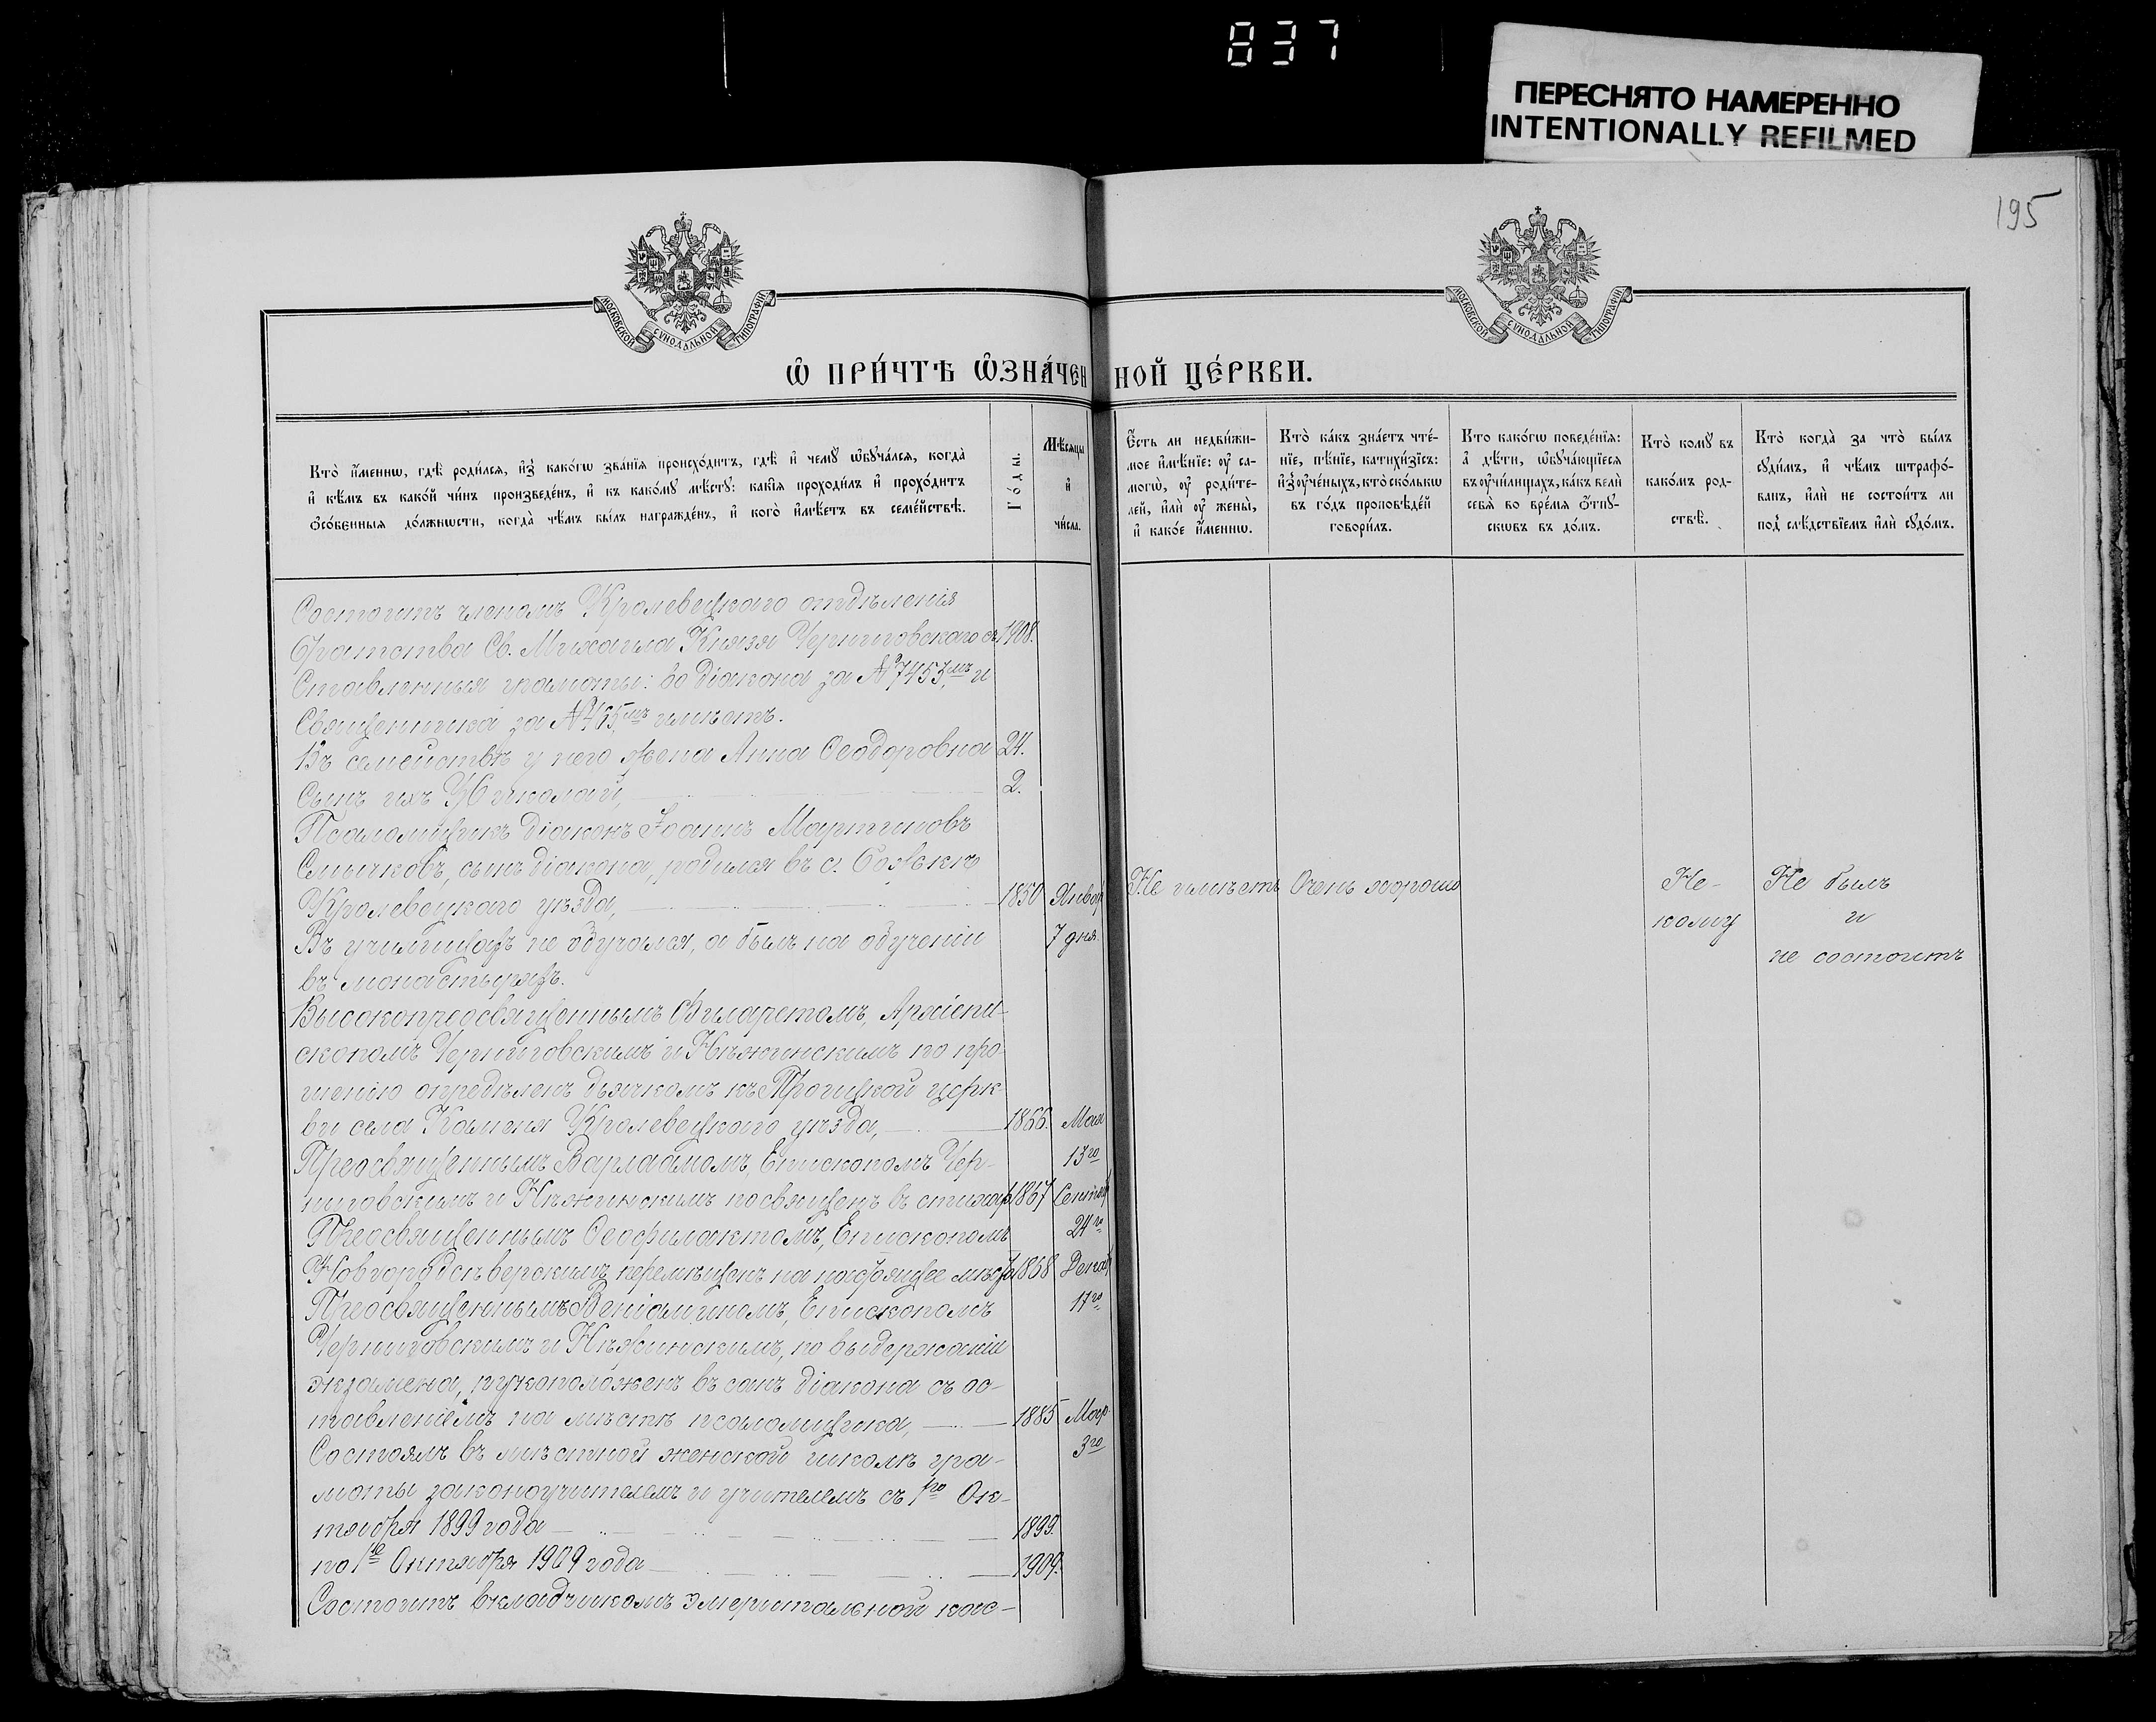 837
ПЕРЕСНЯТО НАМЕРЕННО
INTENTIONALLY REFILMED
195
МОСКОВСКОЙ СѴНОДАЛЬНОЙ ТИПОГРАФІИ
МОСКОВСКОЙ СѴНОДАЛЬНОЙ ТИПОГРАФІИ
Ѡ ПРИ́ЧТѢ Ѡ҆ЗНА́ЧЕННОЙ ЦЕ́РКВИ.
Кто̀ и҆́меннѡ, гдѣ̀ роди́лсѧ, и҆з̾ како́гѡ зва́нїѧ происхо́дитъ, гдѣ̀ и҆ чемꙋ̀ ѡ҆бꙋча́лсѧ, когда̀
и҆ кѣ́мъ въ како́й чи́нъ произведе́нъ, и҆ къ како́мꙋ мѣ́стꙋ: какі̑ѧ проходи́лъ и҆ прохо́дитъ
ѻ҆со́бенныѧ до́лжности, когда̀ чѣ́мъ бы́лъ награжде́нъ, и҆ кого̀ и҆мѣ́етъ въ семе́йствѣ.
Го́ды.
Мѣ́сѧцы
и҆
чи́сла.
Є҆́сть ли недви́жи-
мое и҆мѣ́нїе: ᲂу҆ са-
могѡ̀, ᲂу҆ роди́те-
лей, и҆лѝ ᲂу҆ жены̀,
и҆ како́е и҆́меннѡ.
Кто̀ ка́къ зна́етъ чте́-
нїе, пѣ́нїе, катихи́зїсъ:
и҆з̾ ᲂу҆че́ныхъ, кто̀ ско́лькѡ
въ го́дъ проповѣ́дей
говори́лъ.
Кто како́гѡ поведе́нїѧ:
а҆ дѣ́ти, ѡ҆бꙋча́ющїесѧ
въ ᲂу҆чи́лищахъ, ка́къ велѝ
себѧ̀ во вре́мѧ ѿпꙋ-
сковъ въ до́мъ.
Кто̀ комꙋ̀ въ
како́мъ род-
ствѣ̀.
Кто̀ когда̀ за что̀ бы́лъ
сꙋди́мъ, и҆ чѣ́мъ штрафо́-
ванъ, и҆лѝ не состои́тъ ли
под̾ слѣ́дствїемъ и҆лѝ сꙋдо́мъ.
Состоитъ членомъ Кролевецкаго отдѣленія
Братства Св. Михаила Князя Черниговскаго съ 1908.
Ставленныя грамоты: во діакона за № 7453мъ и
Священника за № имѣетъ.
Въ семействѣ у него жена Анна Ѳеодоровна 24.
Сынъ ихъ Николай, 2.
Псаломщикъ діаконъ Іоаннъ Мартиновъ
Смычковъ, сынъ діакона, родился въ с.
Кролевецкаго уѣзда, 1850 Январ
Не имѣетъ Очень хорошо Не- Не былъ
Въ училищахъ не обучался, а былъ на обученіи 7 дня.
кому и
въ монастыряхъ.
не состоитъ
Высокопреосвященнымъ Филаретомъ, Архіепи-
скопомъ Черниговскимъ и Нѣжинскимъ по про-
шенію опредѣленъ дьячкомъ къ Троицкой церк-
ви села Каменя Кролевецкаго уѣзда, 1866. Мая
Преосвященнымъ Варлаамомъ, Епископомъ Чер- 13го
ниговскимъ и Нѣжинскимъ посвященъ въ стихарь 1867 Сентяб
Преосвященнымъ Ѳеофилактомъ, Епископомъ 24го
Новгородсѣверскимъ перемѣщенъ на настоящее мѣсто 1868 Декаб
Преосвященнымъ Веніаминомъ, Епископомъ 17го
Черниговскимъ и Нѣжинскимъ, по выдержаніи
экзамена, рукоположенъ въ санъ діакона съ ос-
тавленіемъ на мѣстѣ псаломщика, 1885 Мар.
Состоялъ въ мѣстной женской школѣ гра- 3го
моты законоучителемъ и учителемъ съ 1го Ок-
тября 1899 года 1899.
по 1е Октября 1909 года 1909.
Состоитъ вкладчикомъ эмеритальной кас-